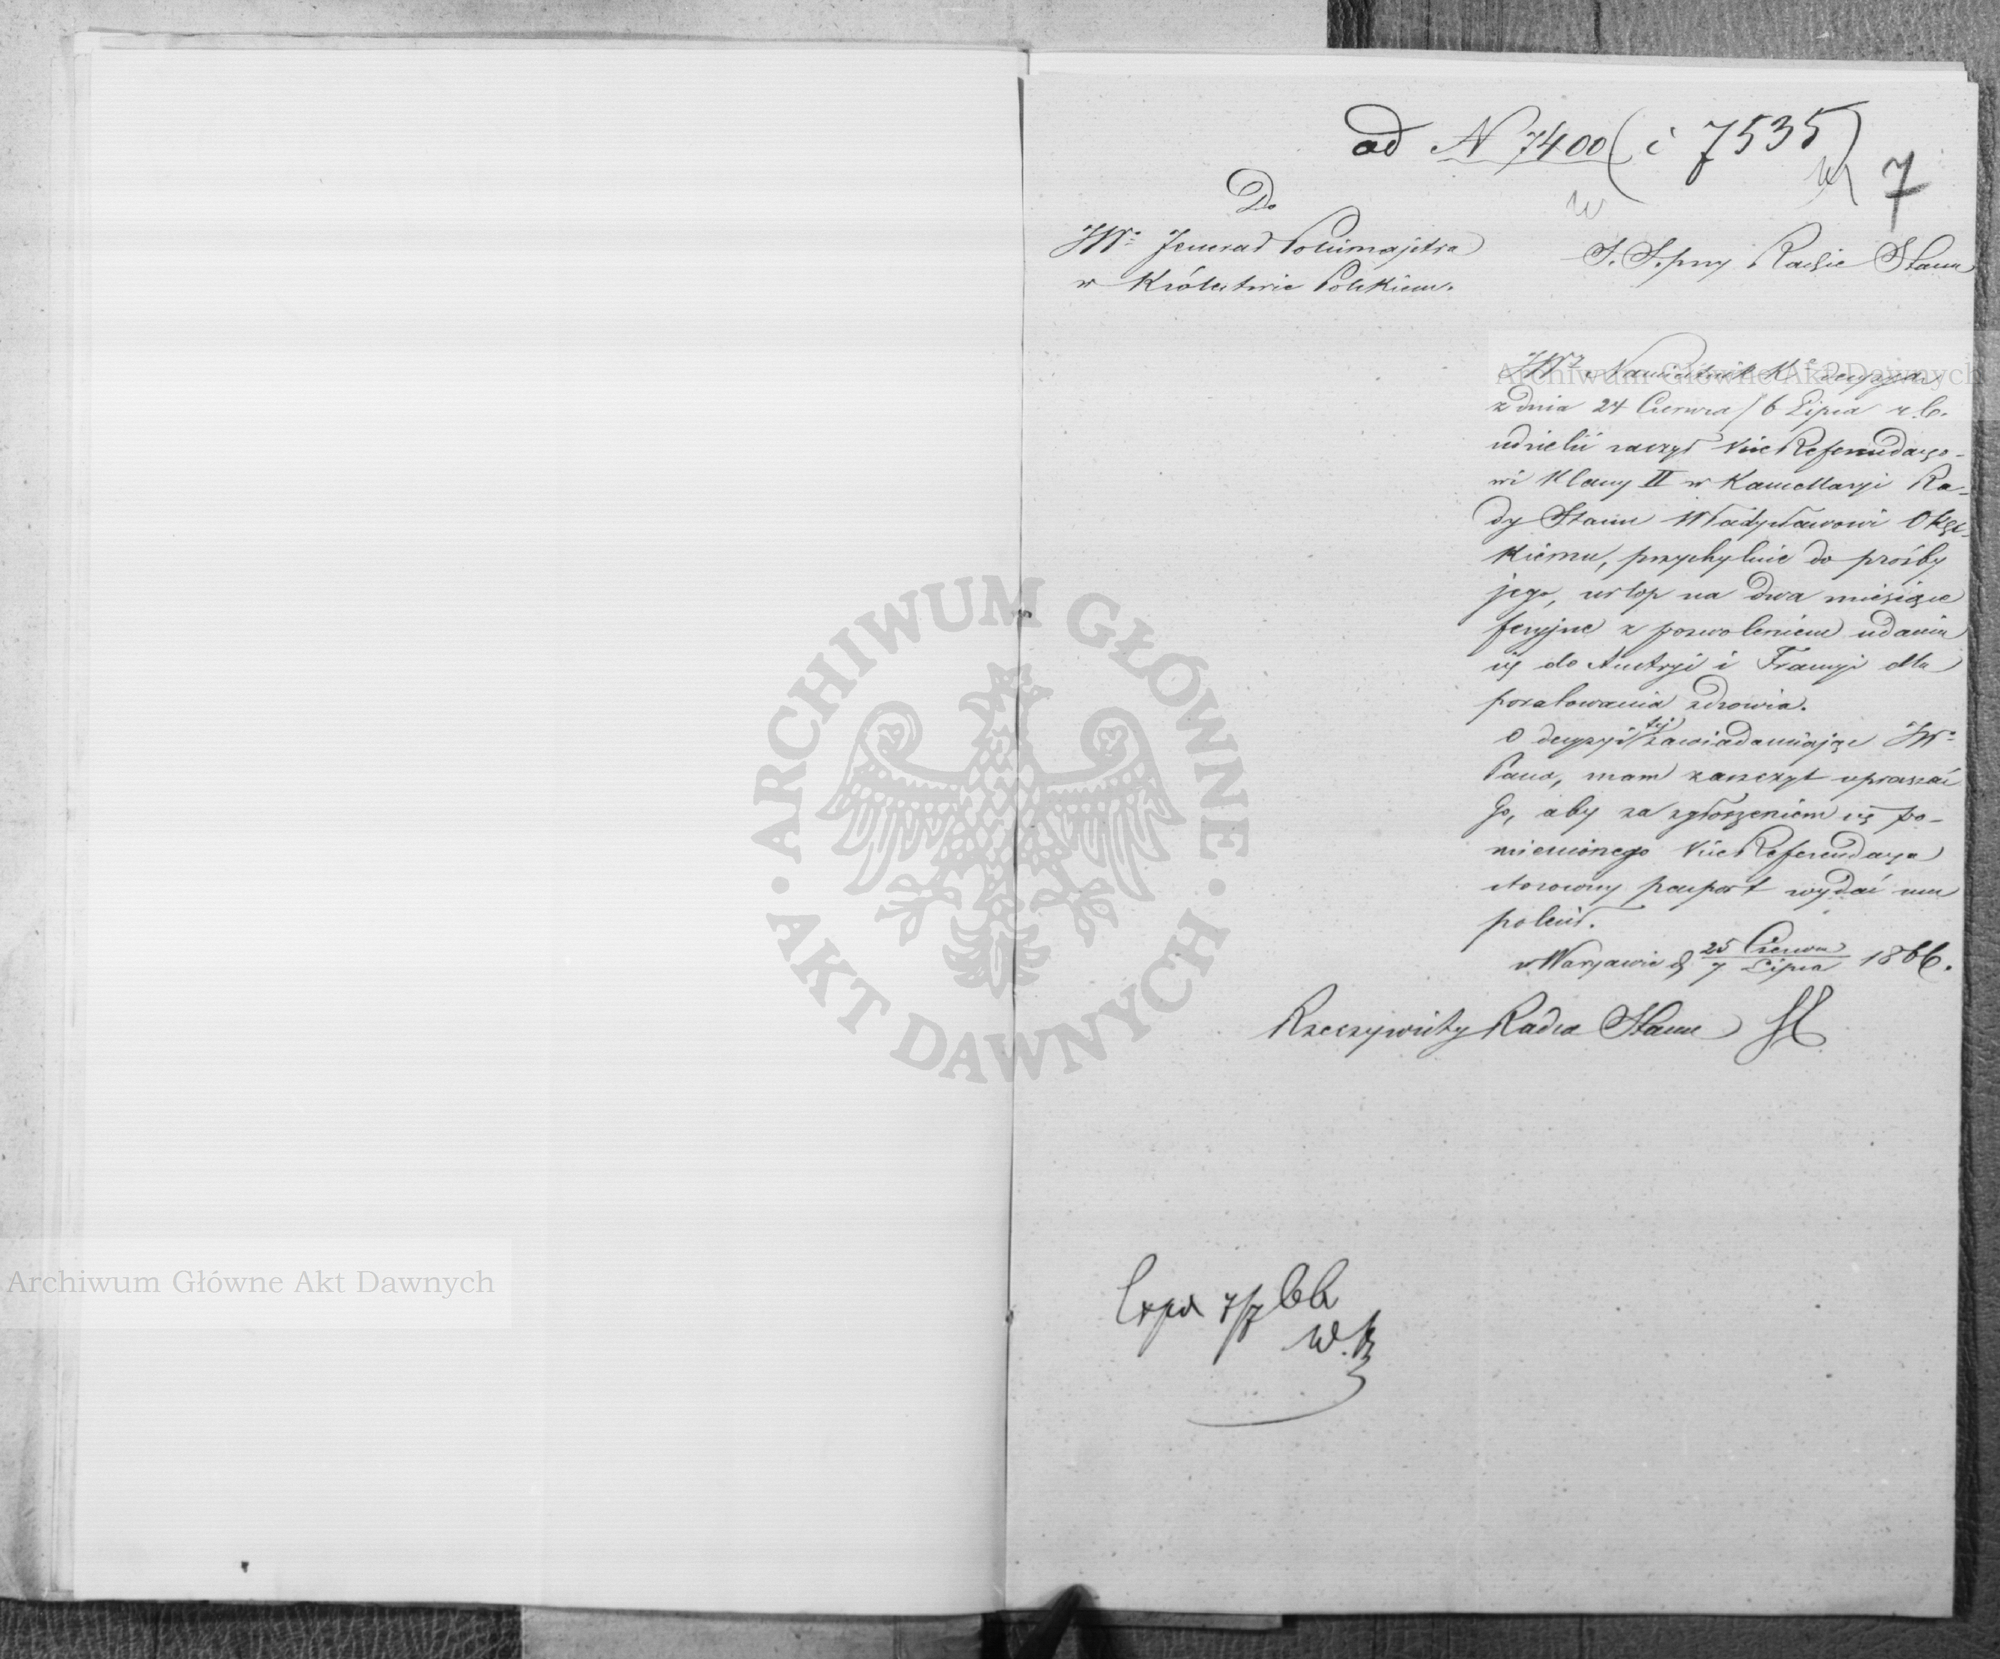 ad N 7400 (i 7535)
7
Do
JW: Jenerał Policmajstra
w Królestwie Polskiem.
S. S. przy Radzie Stanu
JW. Namiestnik Kr. decyzją
z dnia 24 Czerwca / 6 Lipca r.b.
udzielić raczył Vice Referendarzo-
wi Klassy II w Kancellaryi Ra-
dy Stanu Władysławowi Okęc-
kiemu, przychylnie do prośby
jego, urlop na dwa miesiące
feryjne z pozwoleniem udania
się do Austryi i Francyi dla
poratowania zdrowia.
O decyzyi tej zawiadamiając JW:
Pana, mam zaszczyt upraszać
Go, aby za zgłoszeniem się po-
mienionego Vice Referendarza
stosowny paszport wydać mu
polecił.
w Warszawie d. 25 Czerwca / 7 Lipca 1866.
Rzeczywisty Radca Stanu
Exped 7/7 66
W. K
Archiwum Główne Akt Dawnych
Archiwum Główne Akt Dawnych
ARCHIWUM GŁÓWNE
· AKT DAWNYCH ·